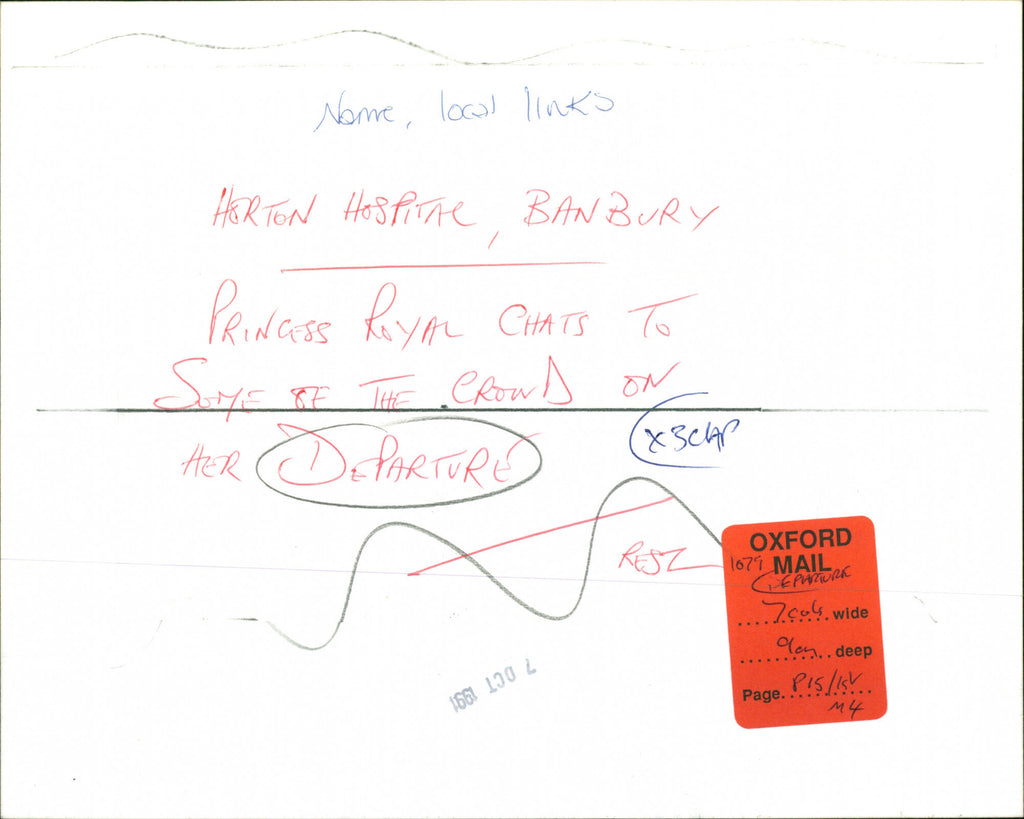 Name, local links
HORTON HOSPITAL, BANBURY
PRINCESS ROYAL CHATS TO
SOME OF THE CROWD ON
HER DEPARTURE
x3clap
REST
OXFORD
1079 MAIL
DEPARTURE
7cols wide
9cm deep
Page P15/
M4
7 OCT 1991